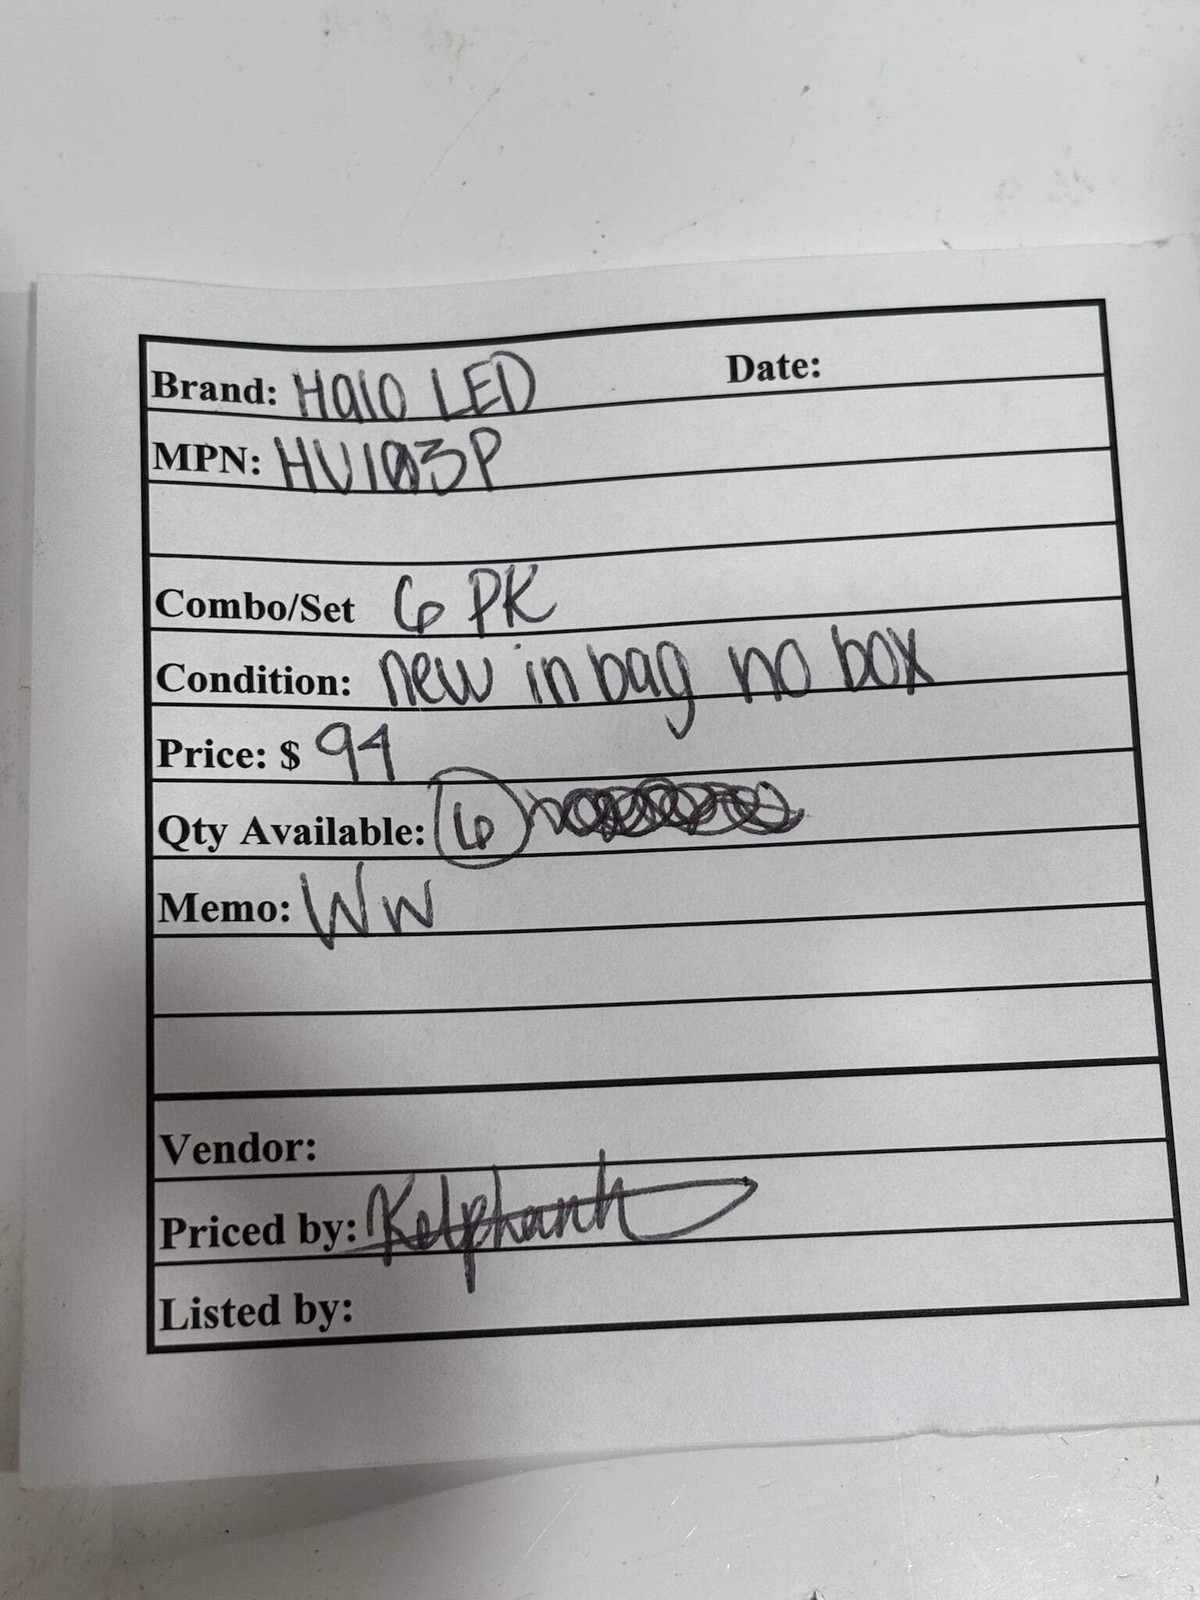 Brand: Halo LED Date:
MPN: HU103P
Combo/Set 6 PK
Condition: new in bag no box
Price: $ 94
Qty Available: 6
Memo: WW
Vendor:
Priced by:
Listed by: